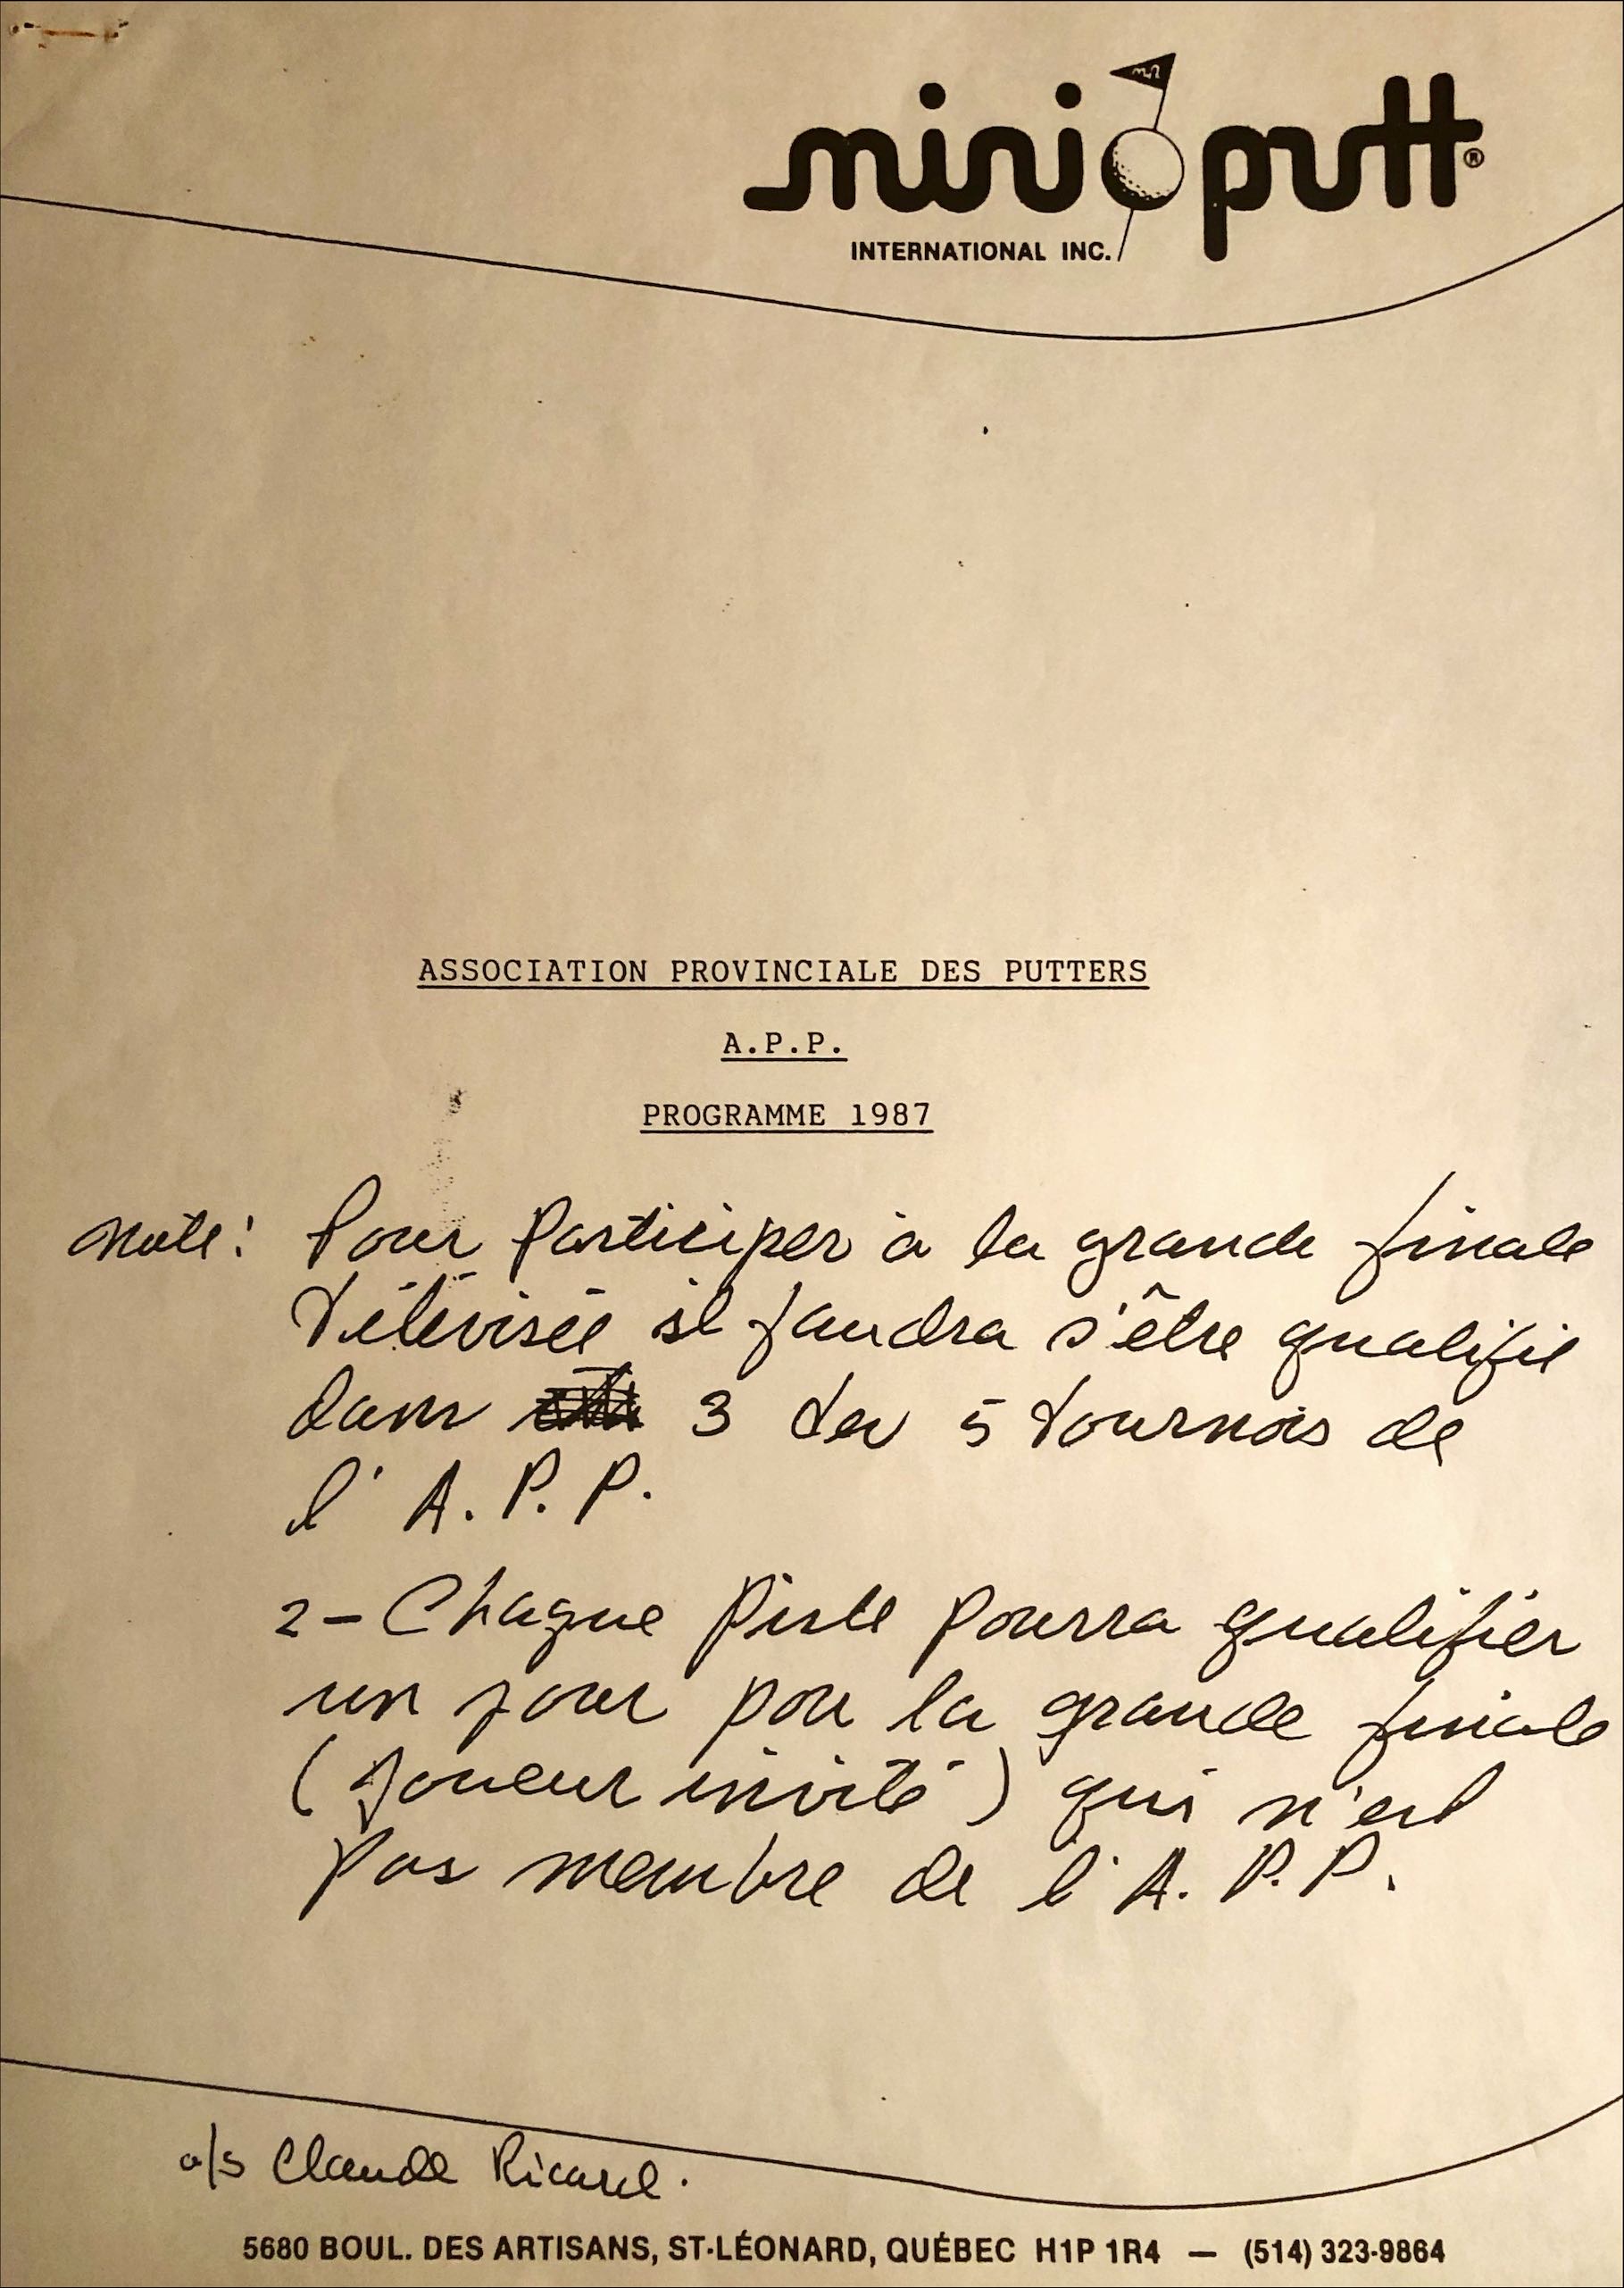 mini putt®
INTERNATIONAL INC.
ASSOCIATION PROVINCIALE DES PUTTERS
A.P.P.
PROGRAMME 1987
Note: Pour Participer à la grande finale
Télévisée il faudra s'être qualifié
dans 3 des 5 Tournois de
l'A.P.P.
2- Chaque Piste pourra qualifier
un jour pou la grande finale
(Joueur invité) qui n'est
pas membre de l'A.P.P.
a/s Claude Ricard.
5680 BOUL. DES ARTISANS, ST-LÉONARD, QUÉBEC H1P 1R4 — (514) 323-9864